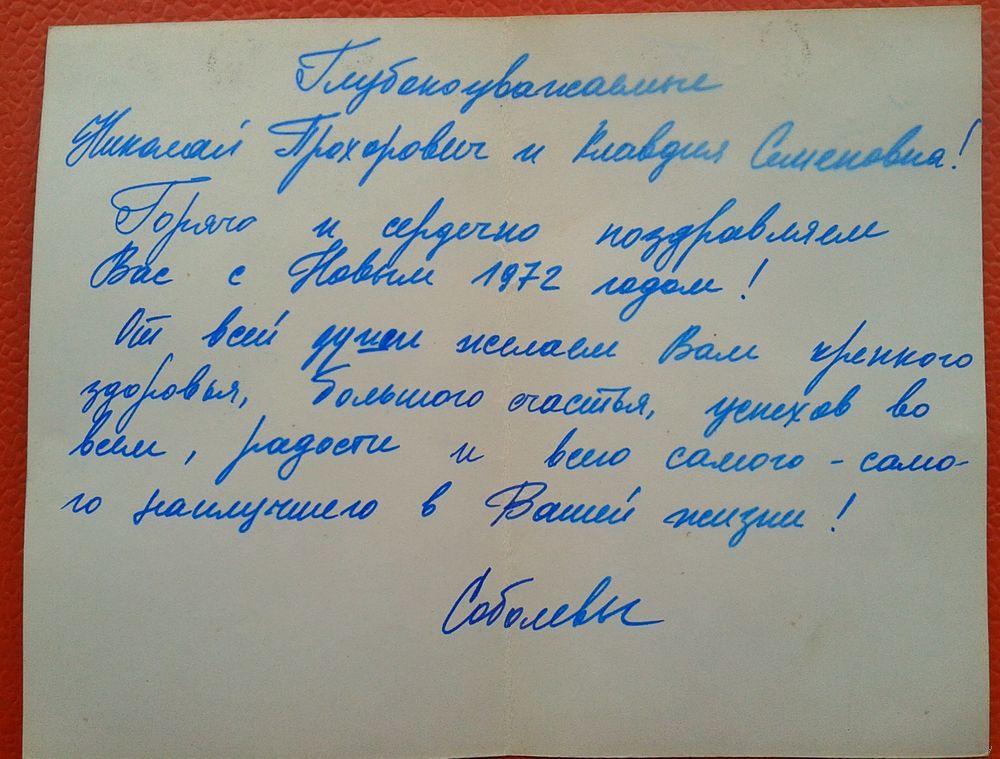 Глубокоуважаемые
Николай Прохорович и Клавдия Семеновна!
Горячо и сердечно поздравляем
Вас с Новым 1972 годом!
От всей души желаем Вам крепкого
здоровья, большого счастья, успехов во
всем, радости и всего самого-само-
го наилучшего в Вашей жизни!
Соболевы